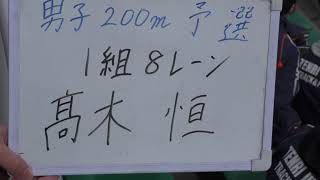 男子 200m 予選
1組 8レーン
髙木 恒